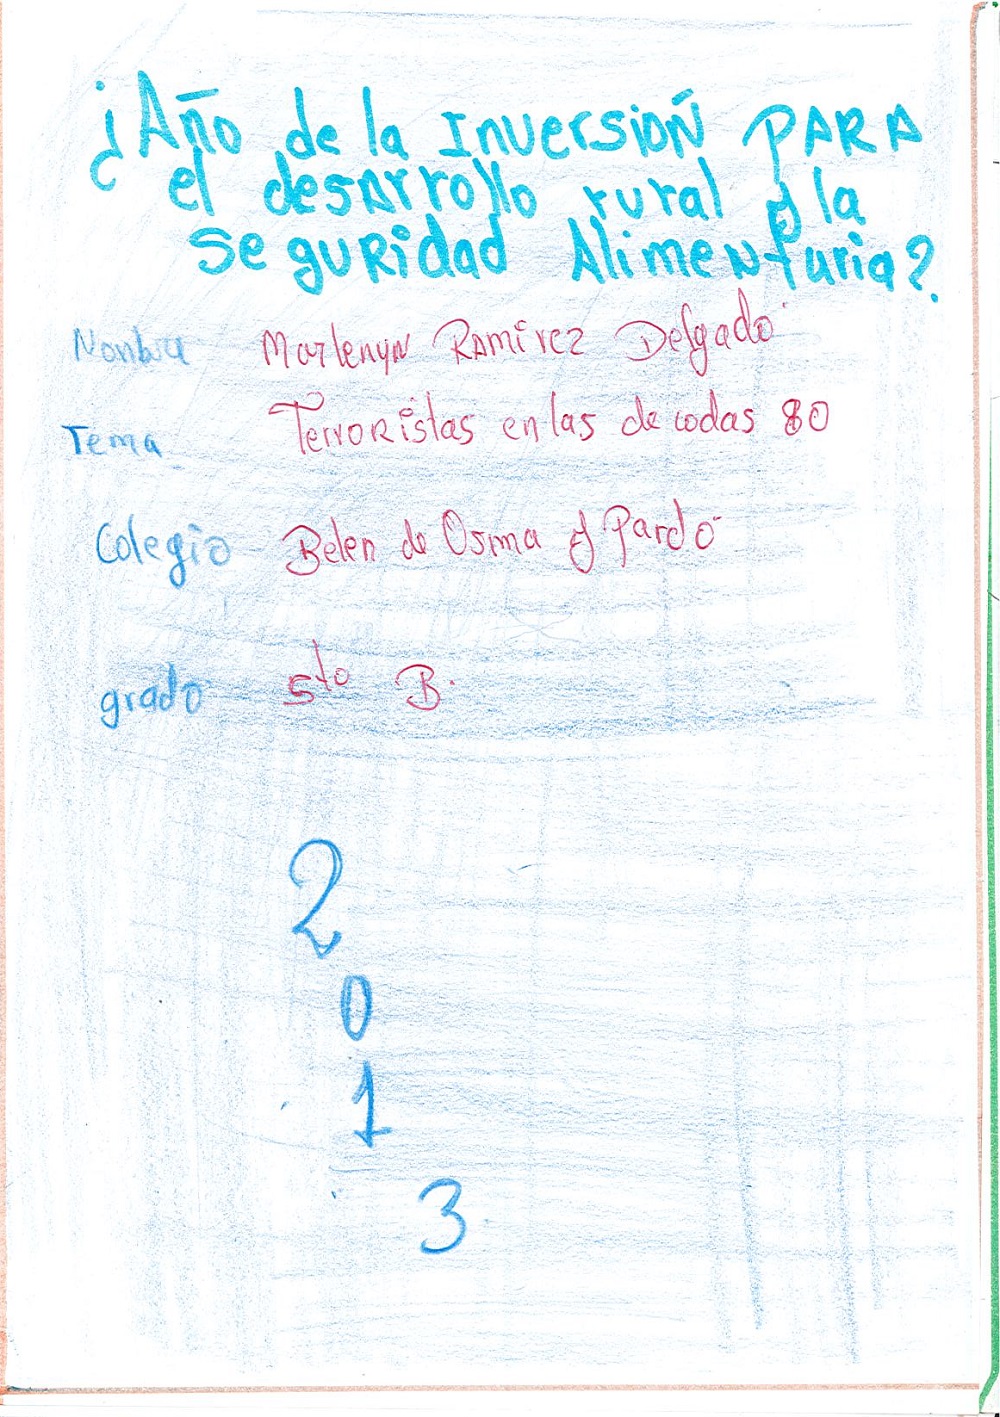 ¿Año de la InversioŃ PARA
el desarrollo rural y la
Seguridad Alimenturia?.
Nonbre Marlenyn Ramirez Delgado
Tema Terroristas en las de codas 80
Colegio Belen de Osma y Pardo
grado 5to B.
2
0
1
3